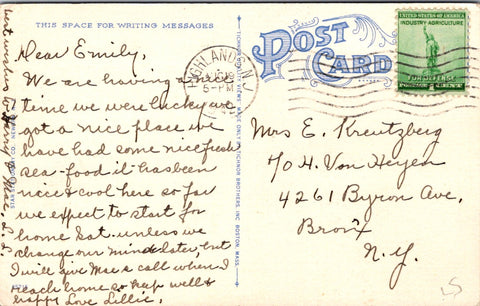 THIS SPACE FOR WRITING MESSAGES
Dear Emily,
We are having a
time we were lucky we
got a nice place we
have had some nice fresh
sea-food it has been
nice & cool here so far
we expect to start for
home Sat. unless we
change our mind later, but
I will give Mae a call when I
reach home so keep well &
happy Love Lillie,
best wishes to
POST CARD
HIGHLAND
5-PM
UNITED STATES OF AMERICA
INDUSTRY AGRICULTURE
FOR DEFENSE
Mrs E. Kreutzberg
% H. Von Heyen
4261 Byron Ave,
Bronx
N.Y.
TICHNOR BROTHERS, INC., BOSTON, MASS.